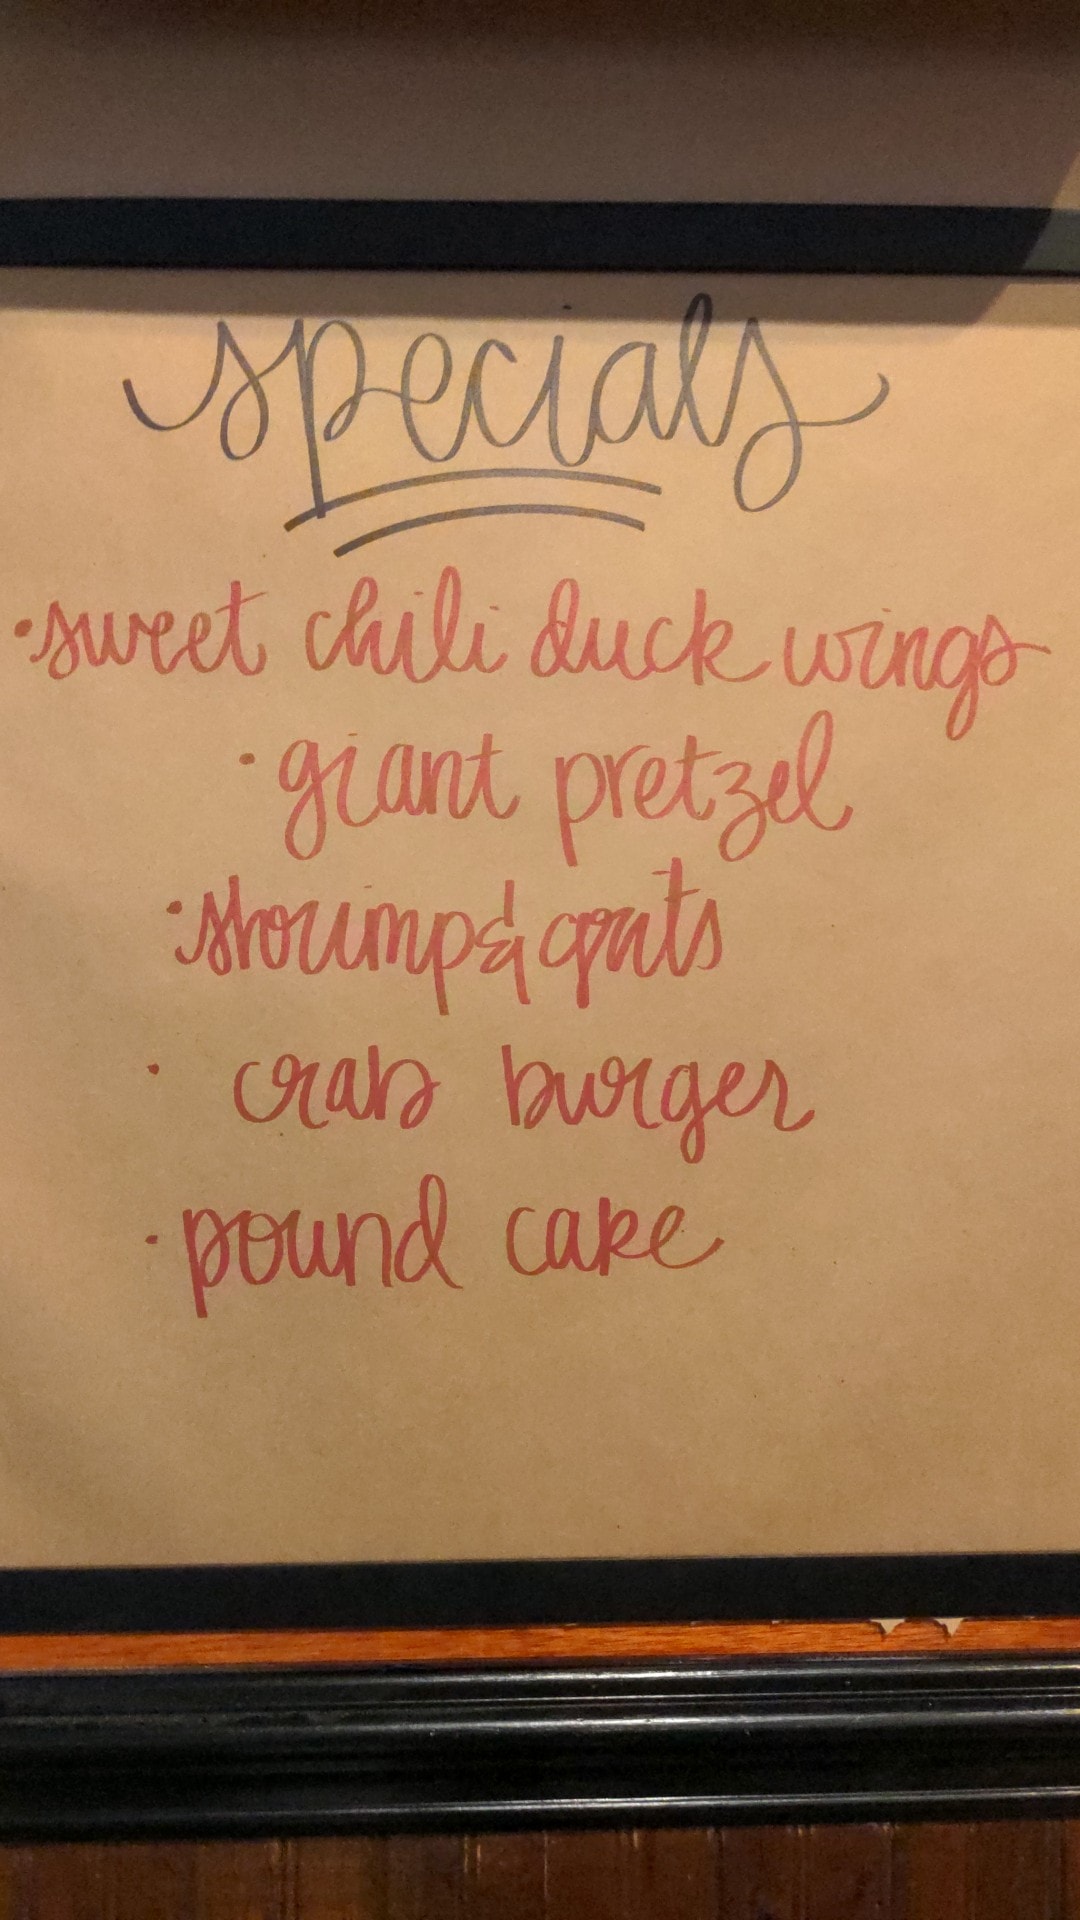 specials
·sweet chili duck wings
·giant pretzel
·shrimp & grits
· crab burger
·pound cake